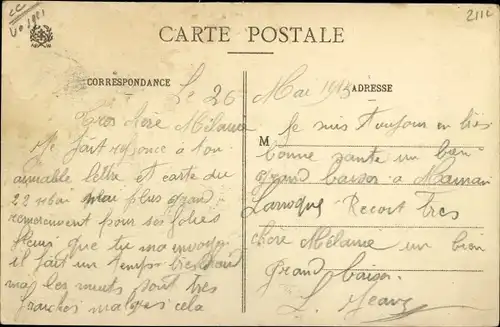 2116
CARTE POSTALE
CORRESPONDANCE
ADRESSE
M
Le 26 Mai 1915
Tres chere Mélanie
Je fait reponce à ton
aimable lettre et carte du
22 mai plus grand
remerciement pour ses jolies
fleurs que tu ma envoyer
il fait un temps tres chaud
mais les nuits sont tres
fraiches malgres cela
Je suis toujour en tres
bonne sante un bien
grand baiser a Maman
Larroque Recoit tres
chere Mélanie un bien
grand baiser
L.